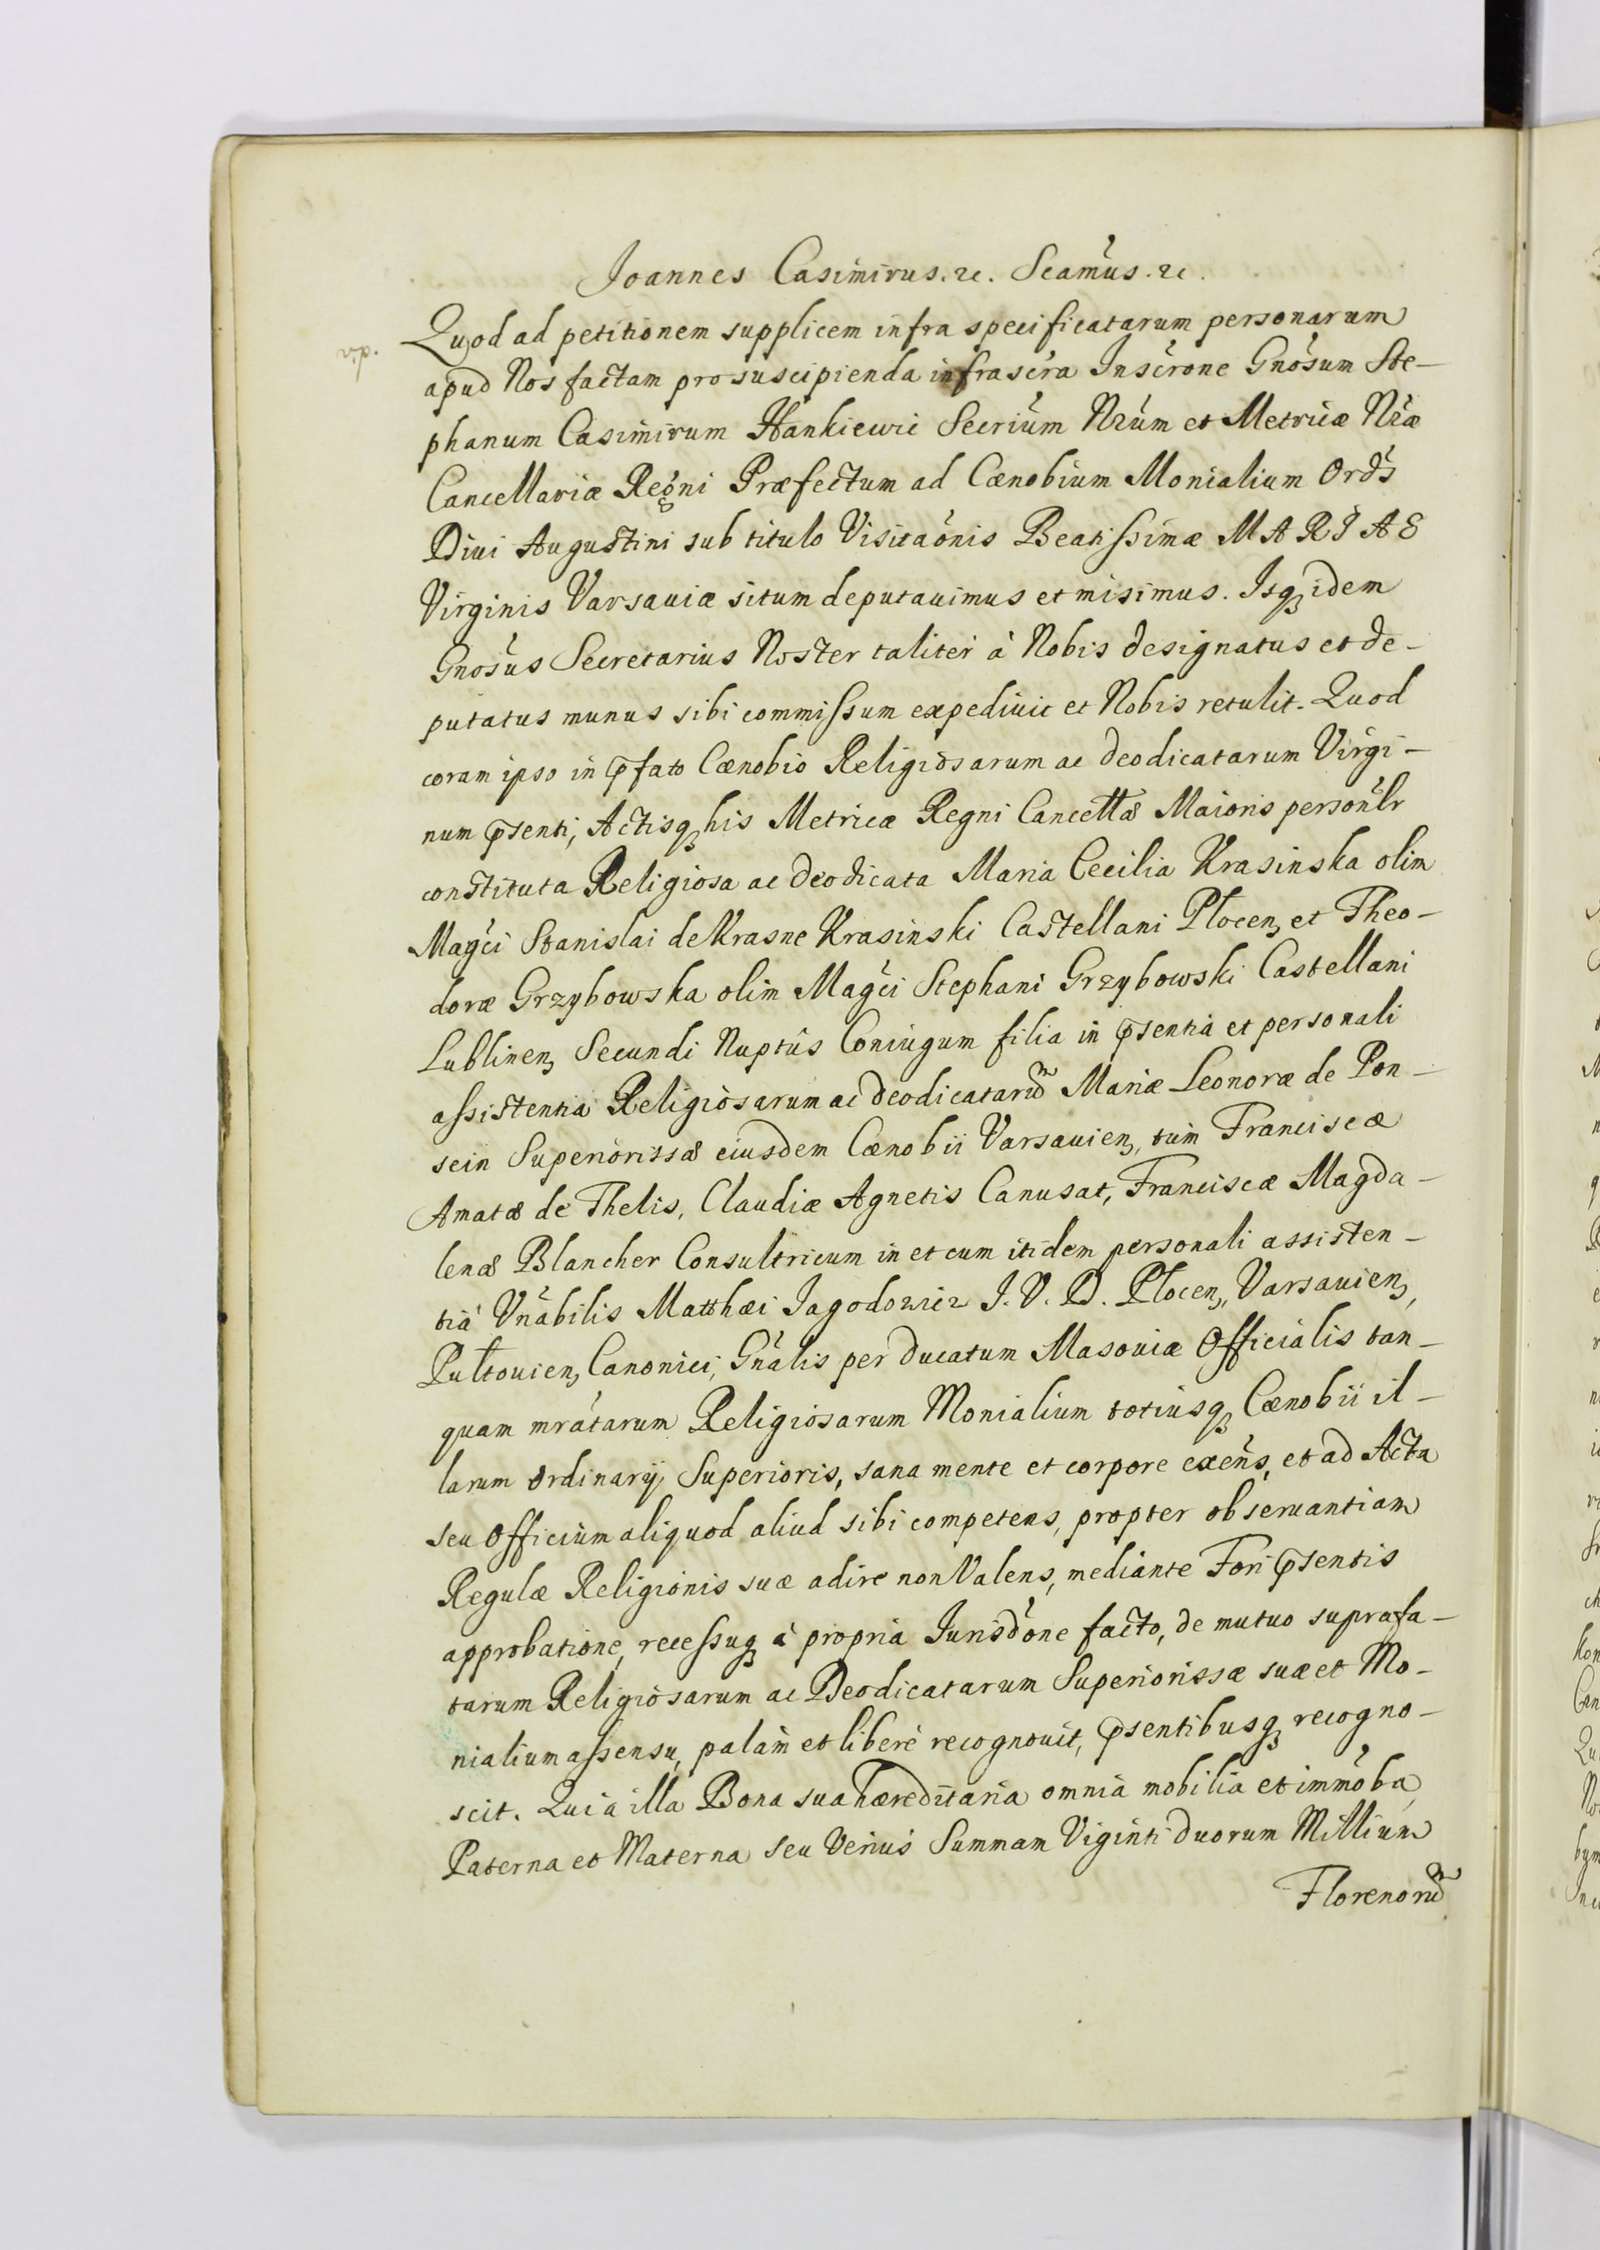 Joannes Casimirus. &c. Scāmus. &c.
Quod ad petitionem supplicem infra specificatarum personarum
apud Nos factam pro suscipienda infrascra Inscrone Gnosum Ste-
phanum Casimirum Hankiewic Secrium Nrum et Metricæ Nræ
Cancellariæ Regni Præfectum ad Cænobium Monialium Ords
Diui Augustini sub titulo Visitaonis Beatissimæ MARIAE
Virginis Varsauiæ situm deputauimus et misimus. Isq idem
Gnosus Secretarius Noster taliter à Nobis designatus et de-
putatus munus sibi commissum expediuit et Nobis retulit. Quod
coram ipso in pfato Cænobio Religiosarum ac deodicatarum Virgi-
num psenti, Actisq his Metricæ Regni Cancellæ Maioris personlr
constituta Religiosa ac deodicata Maria Cecilia Krasinska olim
Magci Stanislai de Krasne Krasinski Castellani Plocen, et Theo-
doræ Grzybowska olim Magci Stephani Grzybowski Castellani
Lublinen, Secundi Nuptus Coniugum filia in psentia et personali
assistentia Religiosarum ac deodicatarum Mariæ Leonoræ de Pon-
sein Superiorissæ eiusdem Cænobii Varsauien, tum Franciscæ
Amatæ de Thelis, Claudiæ Agnetis Canusat, Franciscæ Magda-
lenæ Blancher Consultricum in et cum itidem personali assisten-
tia Vnabilis Matthæi Jagodowicz J. V. D. Plocen, Varsauien,
Pultouien, Canonici, Gnalis per Ducatum Masouiæ Officialis tan-
quam mratarum Religiosarum Monialium totiusq Cænobii il-
larum ordinarij Superioris, sana mente et corpore exens, et ad Acta
seu Officium aliquod aliud sibi competens, propter obseruantiam
Regulæ Religionis suæ adire non Valens, mediante Fori psentis
approbatione, recessuq à propria Jurisdone facto, de mutuo suprafa-
tarum Religiosarum ac Deodicatarum Superiorissæ suæ et Mo-
nialium assensu, palam et liberè recognouit, psentibusq recogno-
scit. Quia illa Bona sua hæreditaria omnia mobilia et immoba
Paterna et Materna seu Verius Summam Viginti duorum Millium
Florenorum